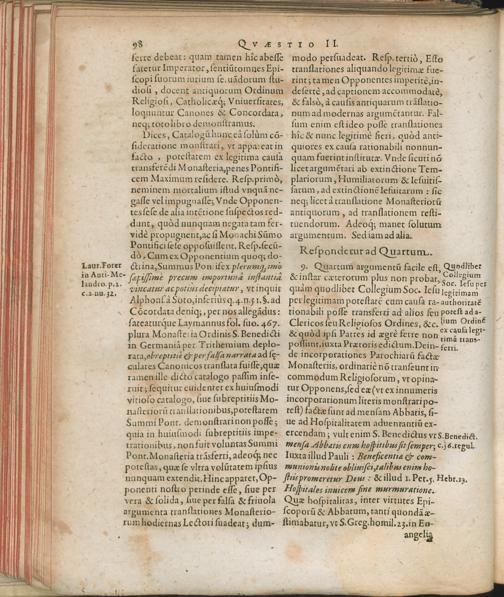 98 QVÆSTIO II.
ferre debeat: quam tamen hic abesse
fatetur Imperator, sentiúntque Epi-
scopi suorum iurium se.uándorum stu-
diosi, docent antiquorum Ordinum
Religiosi, Catholicæq; Vniuersitates,
loquuntur Canones & Concordata,
neq; toto libro demonstramus.
Dices, Catalogú hunc eâ solùm có-
sideratione monstrari, vt appareat in
facto, potestatem ex legitima causa
transferédi Monasteria, penes Pontifi-
cem Maximum residere. Resp. primò,
neminem mortalium istud vnquá ne-
gasse vel impugnasse; Vnde Opponen-
tes sese de alia inténtione suspectos red-
dunt, quòd nunquam negata tam fer-
vidè propugnent, ac si Monachi Sūmo
Pontifici sese opposuissent. Resp. secú-
dò, Cum ex Opponentium quoq; do-
ctrina, Summus Pontifex plerumq, imò
sæpissimè precum importunâ instantiâ
vincatur ac potius decipiatur, vt inquit
Alphonsus Soto, inferiùs q. 4. n. 51. §. ad
Cócordata deniq;, per nos allegádus:
fateaturque Laymannus fol. suo. 467.
plura Monasteria Ordinis S. Benedicti
in Germaniâ per Trithemium deplo-
rata, obreptitiè & per falsa narrata ad sę-
culares Canonicos translata fuisse, quæ
tamen ille dicto catalogo passim inse-
ruit; sequitur euidenter ex huiusmodi
vitioso catalogo, siue subreptitiis Mo-
nasteriorū translationibus, potestatem
Summi Pont. demonstrari non posse;
quia in huiusmodi subreptitiis impe-
trationibus, non fuit voluntas Summi
Pont. Monasteria trásferri, adeoq; nec
potestas, quæ se vltra volūtatem ipsius
nunquam extendit. Hinc apparet, Op-
ponenti nostro perinde esse, siue per
vera & solida, siue per falsa & friuola
argumenta translationes Monasterio-
rum hodiernas Lectori suadeat; dum-
Laur. Forer
in Anti-Me-
landro. p. 2.
c. 2. nu. 32.
modo persuadeat. Resp. tertiò, Esto
translationes aliquando legitimæ fue-
rint; tamen Opponentes imperitè, in-
desertè, ad captionem accommodatè,
& falsò, à causis antiquarum trāslatio-
num ad modernas argumētantur. Fal-
sum enim est ideo posse translationes
hîc & nunc legitimè fieri, quòd anti-
quiores ex causa rationabili nonnun-
quam fuerint institutæ. Vnde sicuti nó
licet argumétari ab extinctione Tem-
plariorum, Humiliatorum & Iesuitis-
sarum, ad extinctioné Iesuitarum: sic
neq; licet à translatione Monasteriorū
antiquorum, ad translationem resti-
tuendorum. Adeoq; manet solutum
argumentum. Sed iam ad alia.
Respondetur ad Quartum.
9. Quartum argumenti facilè est,
& instar cæterorum plus non probat,
quàm quodlibet Collegium Soc. Iesu
per legitimam potestaté cum causa ra-
tionabili posse transferri ad alios seu
Clericos seu Religiosos Ordines, &c.
& quòd ipsi Patres id ægrè ferre non
possint, iuxta Prætoris edictum. Dein-
de incorporationem Parochiarū factæ
Monasteriis, ordinariè nō transeunt in
commodum Religiosorum, vt opina-
tur Opponens, sed eæ (vt ex innumeris
incorporationum literis monstrari po-
test) factæ sunt ad mensam Abbatis, si-
ue ad Hospitalitatem aduenrantiū ex-
ercendam; vult enim S. Benedictus vt
mensa Abbatis cum hospitibus sit semper;
Iuxta illud Pauli: Beneficentiæ & com-
munionis nolite obliuisci, talibus enim ho-
stiis promeretur Deus: & illud 1. Pet. 5.
Hospitales inuicem sine murmuratione.
Quæ hospitalitas, inter virtutes Epi-
scoporū & Abbatum, tanti quondā æ-
stimabatur, vt S. Greg. homil. 23. in Eu-
angelia
Quodlibet
Collegium
Soc. Iesu per
legitimam
authoritaté
potest ad a-
lium Ordiné
ex causa legi-
timâ trans-
ferri.
S. Benedict.
c. 56. regul.
Hebr. 13.